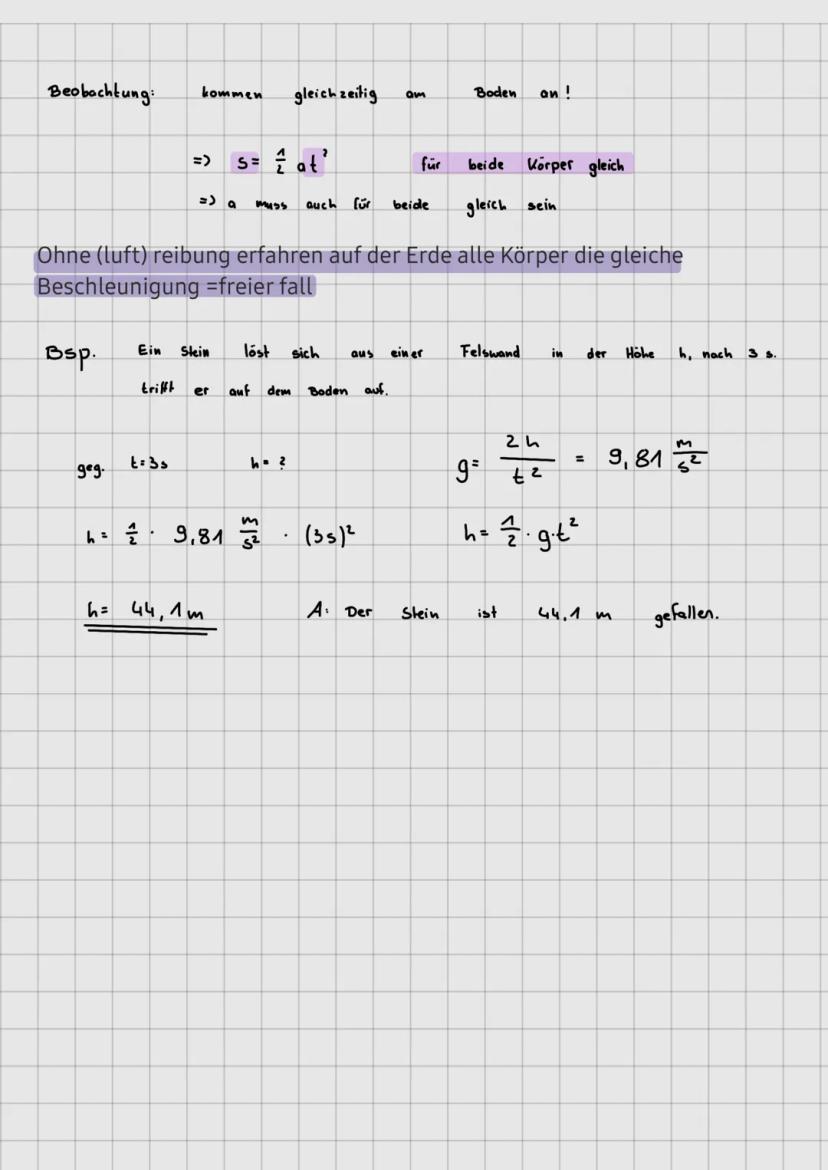 Beobachtung: kommen gleichzeitig am Boden an!
=> s = 1/2 at² für beide Körper gleich
=> a muss auch für beide gleich sein
Ohne (luft) reibung erfahren auf der Erde alle Körper die gleiche
Beschleunigung =freier fall
Bsp. Ein Stein löst sich aus einer Felswand in der Höhe h, nach 3 s.
trifft er auf dem Boden auf.
geg. t=3s h=? g= 2h/t² = 9,81 m/s²
h= 1/2 · 9,81 m/s² · (3s)² h= 1/2 · g·t²
h= 44,1m A: Der Stein ist 44,1 m gefallen.